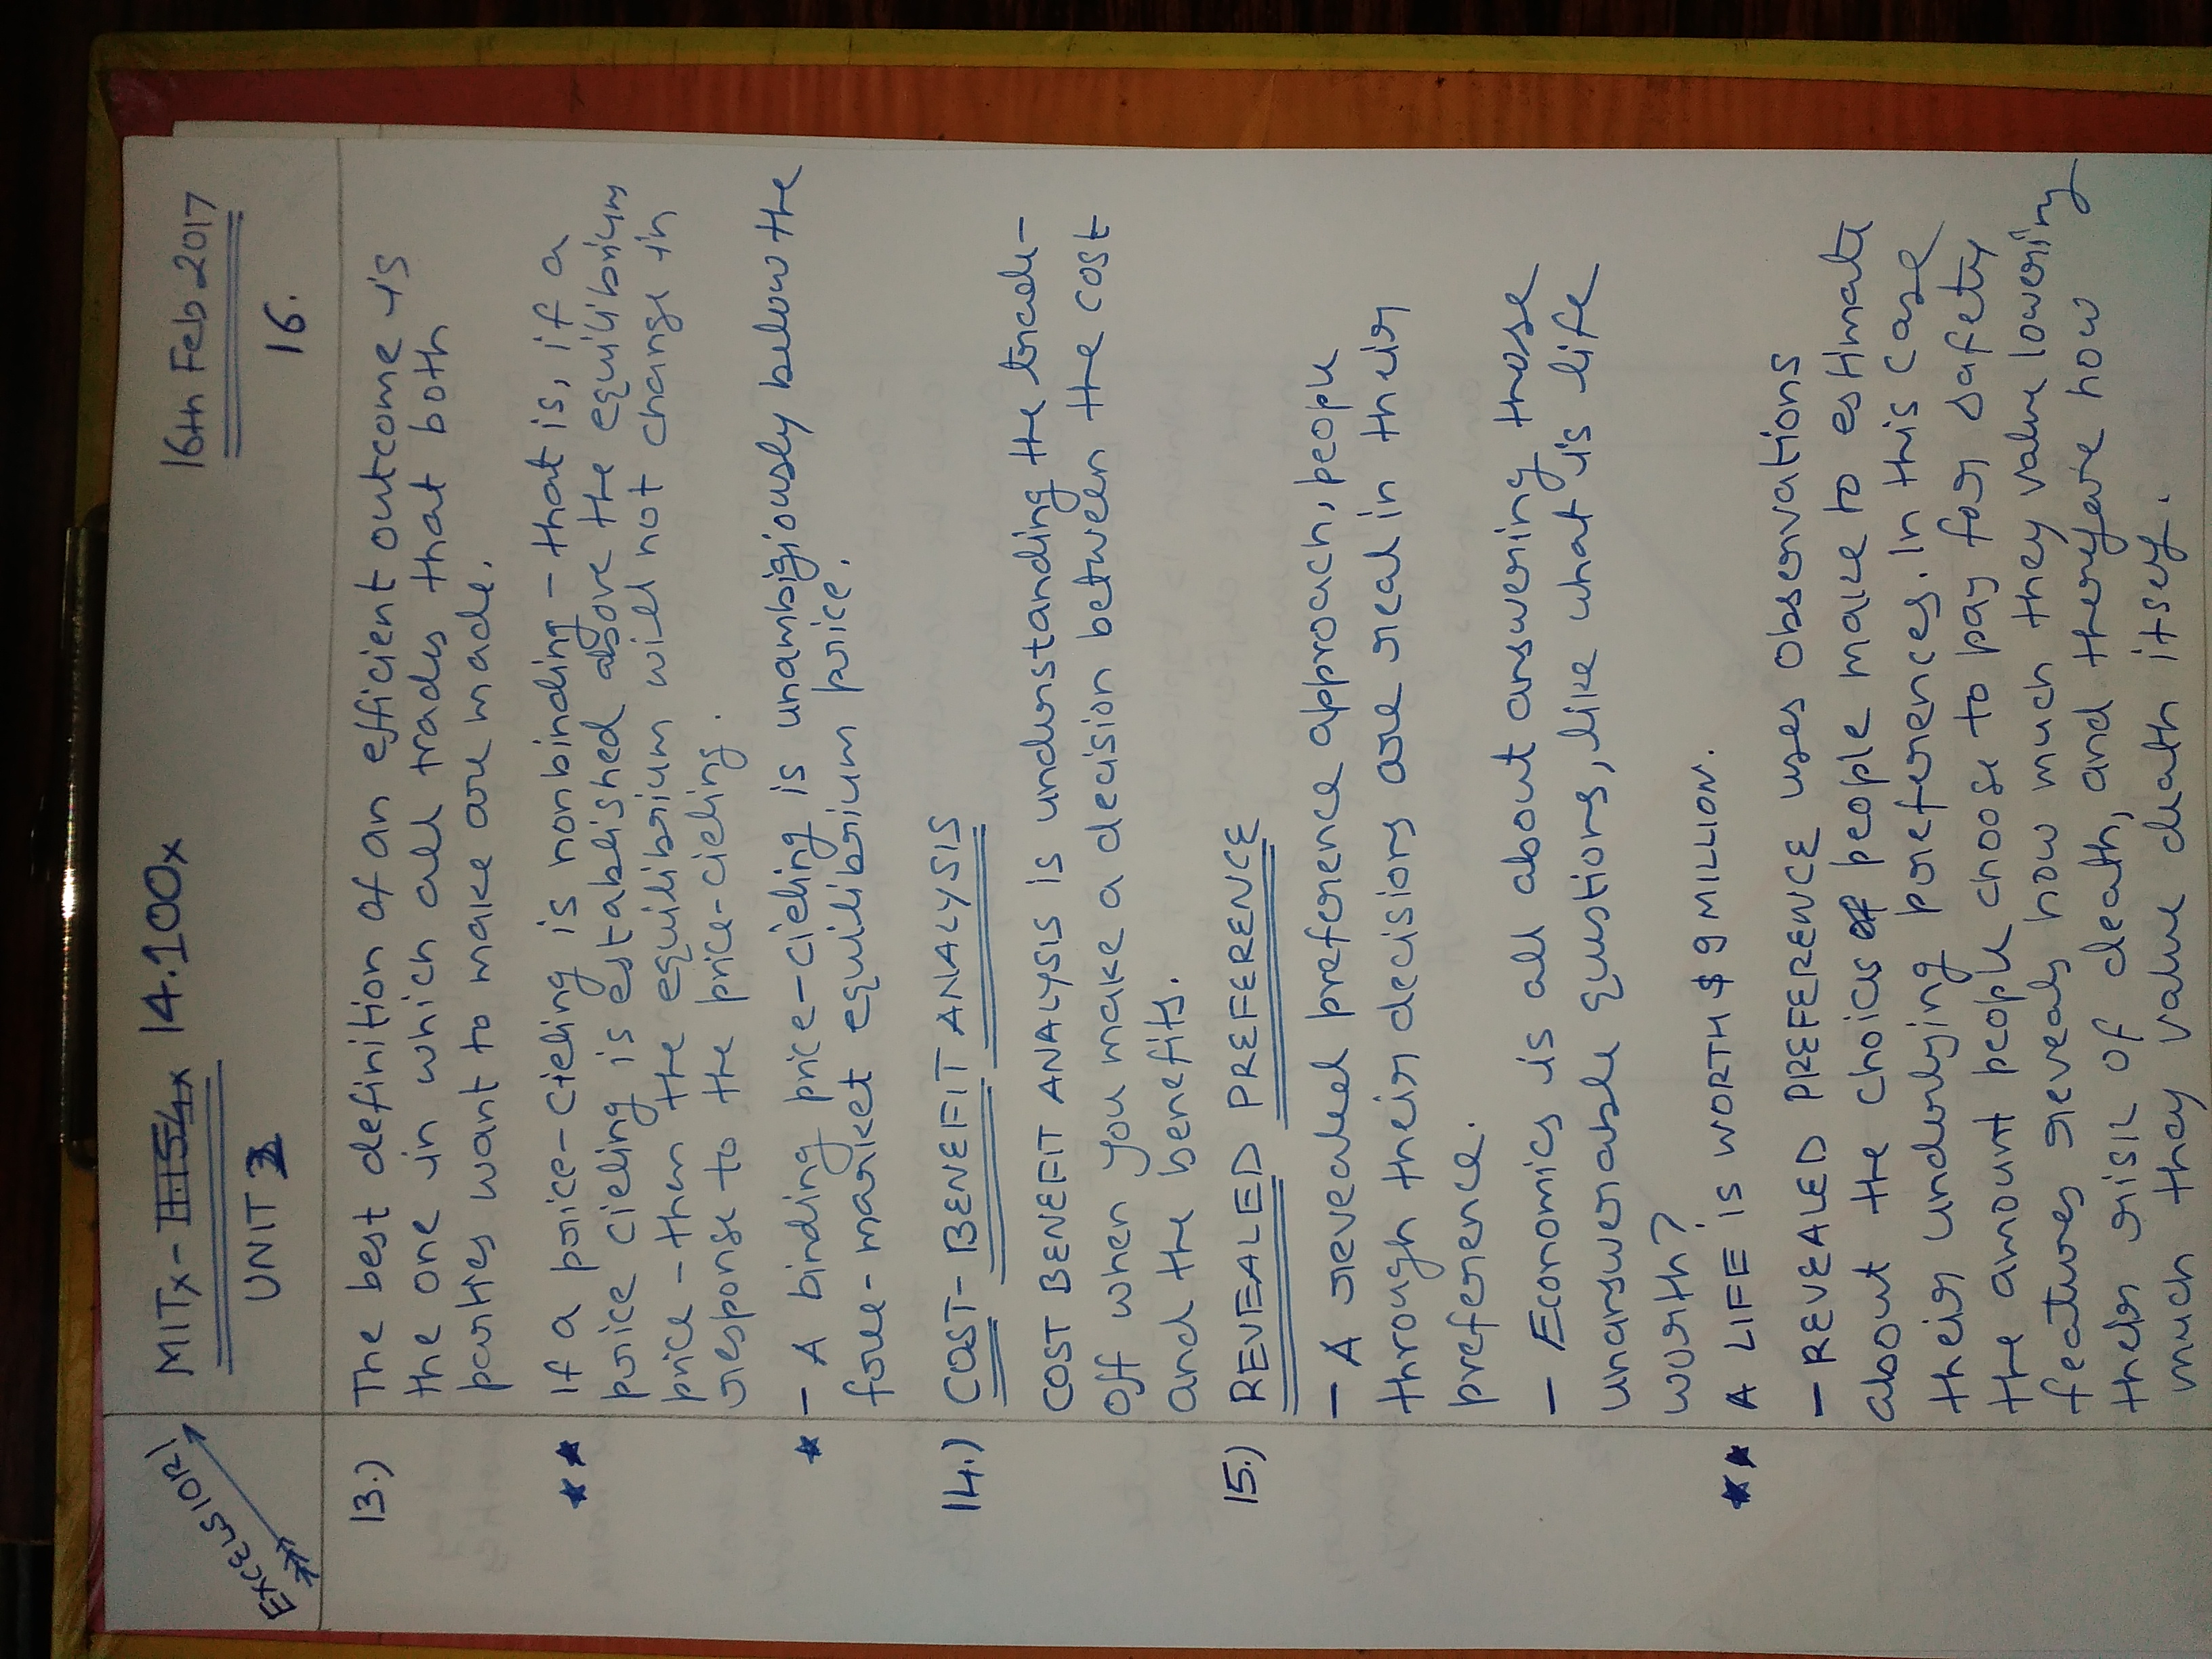 EXCELSIOR!
MITx- 11.154x 14.100x
16th Feb 2017
UNIT 2
16.
13.) The best definition of an efficient outcome is
the one in which all trades that both
parties want to make are made.
★★ If a price-cieling is nonbinding - that is, if a
price cieling is established above the equilibrium
price - then the equilibrium will not change in
response to the price-cieling.
★ - A binding price-cieling is unambigiously below the
free-market equilibrium price.
14.) COST-BENEFIT ANALYSIS
COST BENEFIT ANALYSIS is understanding the trade-
off when you make a decision between the cost
and the benefits.
15.) REVEALED PREFERENCE
- A revealed preference approach, people
through their decisions are real in their
preference.
- Economics is all about answering those
unanswerable questions, like what is life
worth?
★★ A LIFE IS WORTH $ 9 MILLION.
- REVEALED PREFERENCE uses observations
about the choices of people make to estimate
their underlying preferences. In this case
the amount people choose to pay for safety
features reveals how much they value lowering
their risk of death, and therefore how
much they value death itself.